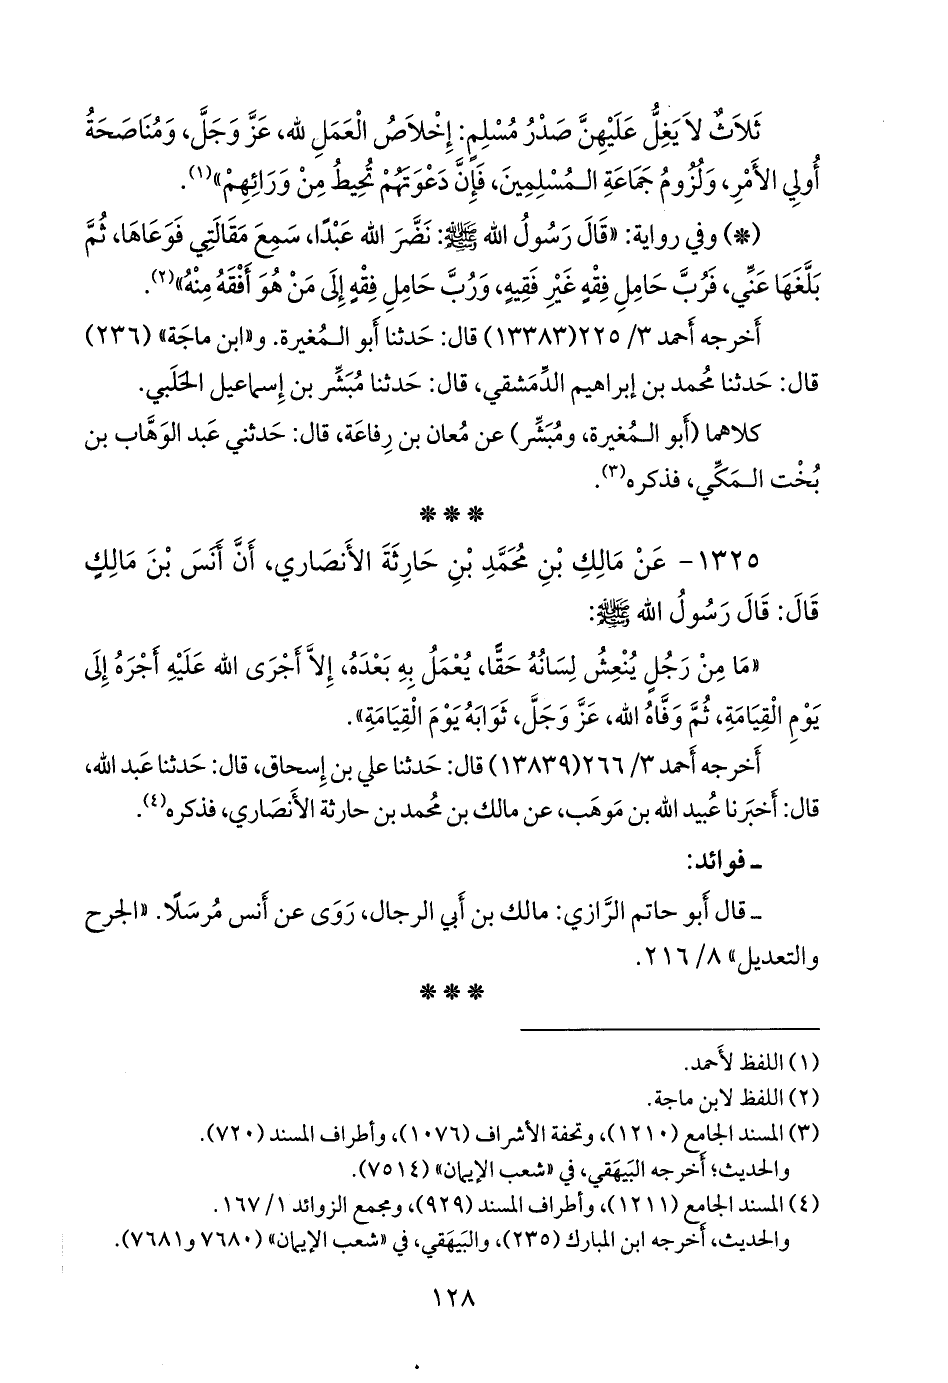 ثَلاَثٌ لاَ يَغِلُّ عَلَيْهِنَّ صَدْرُ مُسْلِمٍ: إِخْلاَصُ الْعَمَلِ لله، عَزَّ وَجَلَّ، وَمُنَاصَحَةُ
أُولِي الأَمْرِ، وَلُزُومُ جَمَاعَةِ الـمُسْلِمِينَ، فَإِنَّ دَعْوَتَهُمْ تُحِيطُ مِنْ وَرَائِهِمْ»(١).
(*) وفي رواية: «قَالَ رَسُولُ الله ﷺ: نَضَّرَ الله عَبْدًا، سَمِعَ مَقَالَتِي فَوَعَاهَا، ثُمَّ
بَلَّغَهَا عَنِّي، فَرُبَّ حَامِلِ فِقْهٍ غَيْرِ فَقِيهٍ، وَرُبَّ حَامِلِ فِقْهٍ إِلَى مَنْ هُوَ أَفْقَهُ مِنْهُ»(٢).
أَخرجه أَحمد ٣/ ٢٢٥(١٣٣٨٣) قال: حَدثنا أَبو الـمُغيرة. و«ابن ماجَة» (٢٣٦)
قال: حَدثنا مُحمد بن إِبراهيم الدِّمَشقي، قال: حَدثنا مُبَشِّر بن إِسماعيل الحَلَبي.
كلاهما (أَبو الـمُغيرة، ومُبَشِّر) عن مُعان بن رِفاعَة، قال: حَدثني عَبد الوَهَّاب بن
بُخْت الـمَكِّي، فذكره(٣).
* * *
١٣٢٥- عَنْ مَالِكِ بْنِ مُحَمَّدِ بْنِ حَارِثَةَ الأَنصَاري، أَنَّ أَنَسَ بْنَ مَالِكٍ
قَالَ: قَالَ رَسُولُ الله ﷺ:
«مَا مِنْ رَجُلٍ يُنْعِشُ لِسَانُهُ حَقًّا، يُعْمَلُ بِهِ بَعْدَهُ، إِلاَّ أَجْرَى الله عَلَيْهِ أَجْرَهُ إِلَى
يَوْمِ الْقِيَامَةِ، ثُمَّ وَفَّاهُ الله، عَزَّ وَجَلَّ، ثَوَابَهُ يَوْمَ الْقِيَامَةِ».
أَخرجه أَحمد ٣/ ٢٦٦(١٣٨٣٩) قال: حَدثنا علي بن إِسحاق، قال: حَدثنا عَبد الله،
قال: أَخبَرنا عُبيد الله بن مَوهَب، عن مالك بن مُحمد بن حارثة الأَنصَاري، فذكره(٤).
ـ فوائد:
ـ قال أَبو حاتم الرَّازي: مالك بن أَبي الرجال، رَوَى عن أَنس مُرسَلًا. «الجرح
والتعديل» ٨/ ٢١٦.
* * *
(١) اللفظ لأَحمد.
(٢) اللفظ لابن ماجة.
(٣) المسند الجامع (١٢١٠)، وتحفة الأشراف (١٠٧٦)، وأطراف المسند (٧٢٠).
والحديث؛ أَخرجه البَيهَقي، في «شعب الإيمان» (٧٥١٤).
(٤) المسند الجامع (١٢١١)، وأطراف المسند (٩٢٩)، ومجمع الزوائد ١/ ١٦٧.
والحديث، أَخرجه ابن المبارك (٢٣٥)، والبَيهَقي، في «شعب الإيمان» (٧٦٨٠ و٧٦٨١).
١٢٨